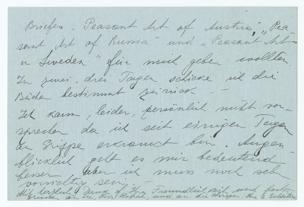 Briefen. "Peasant Art of Austria", "Pea-
sant Art of Russia" und "Peasant Art
in Sweden" für mich geben wollten
In zwei, drei Tagen schicke ich die
Bücher bestimmt zurück. -
Ich kann, leider, persönlich nicht vor-
sprechen da ich seit einigen Tagen
an Grippe erkrankt bin. Augen-
blicklich geht es mir bedeutend
besser aber ich muss noch sehr
vorsichtig sein. -
Mit herzlichem Dank für Ihre Freundlichkeit und